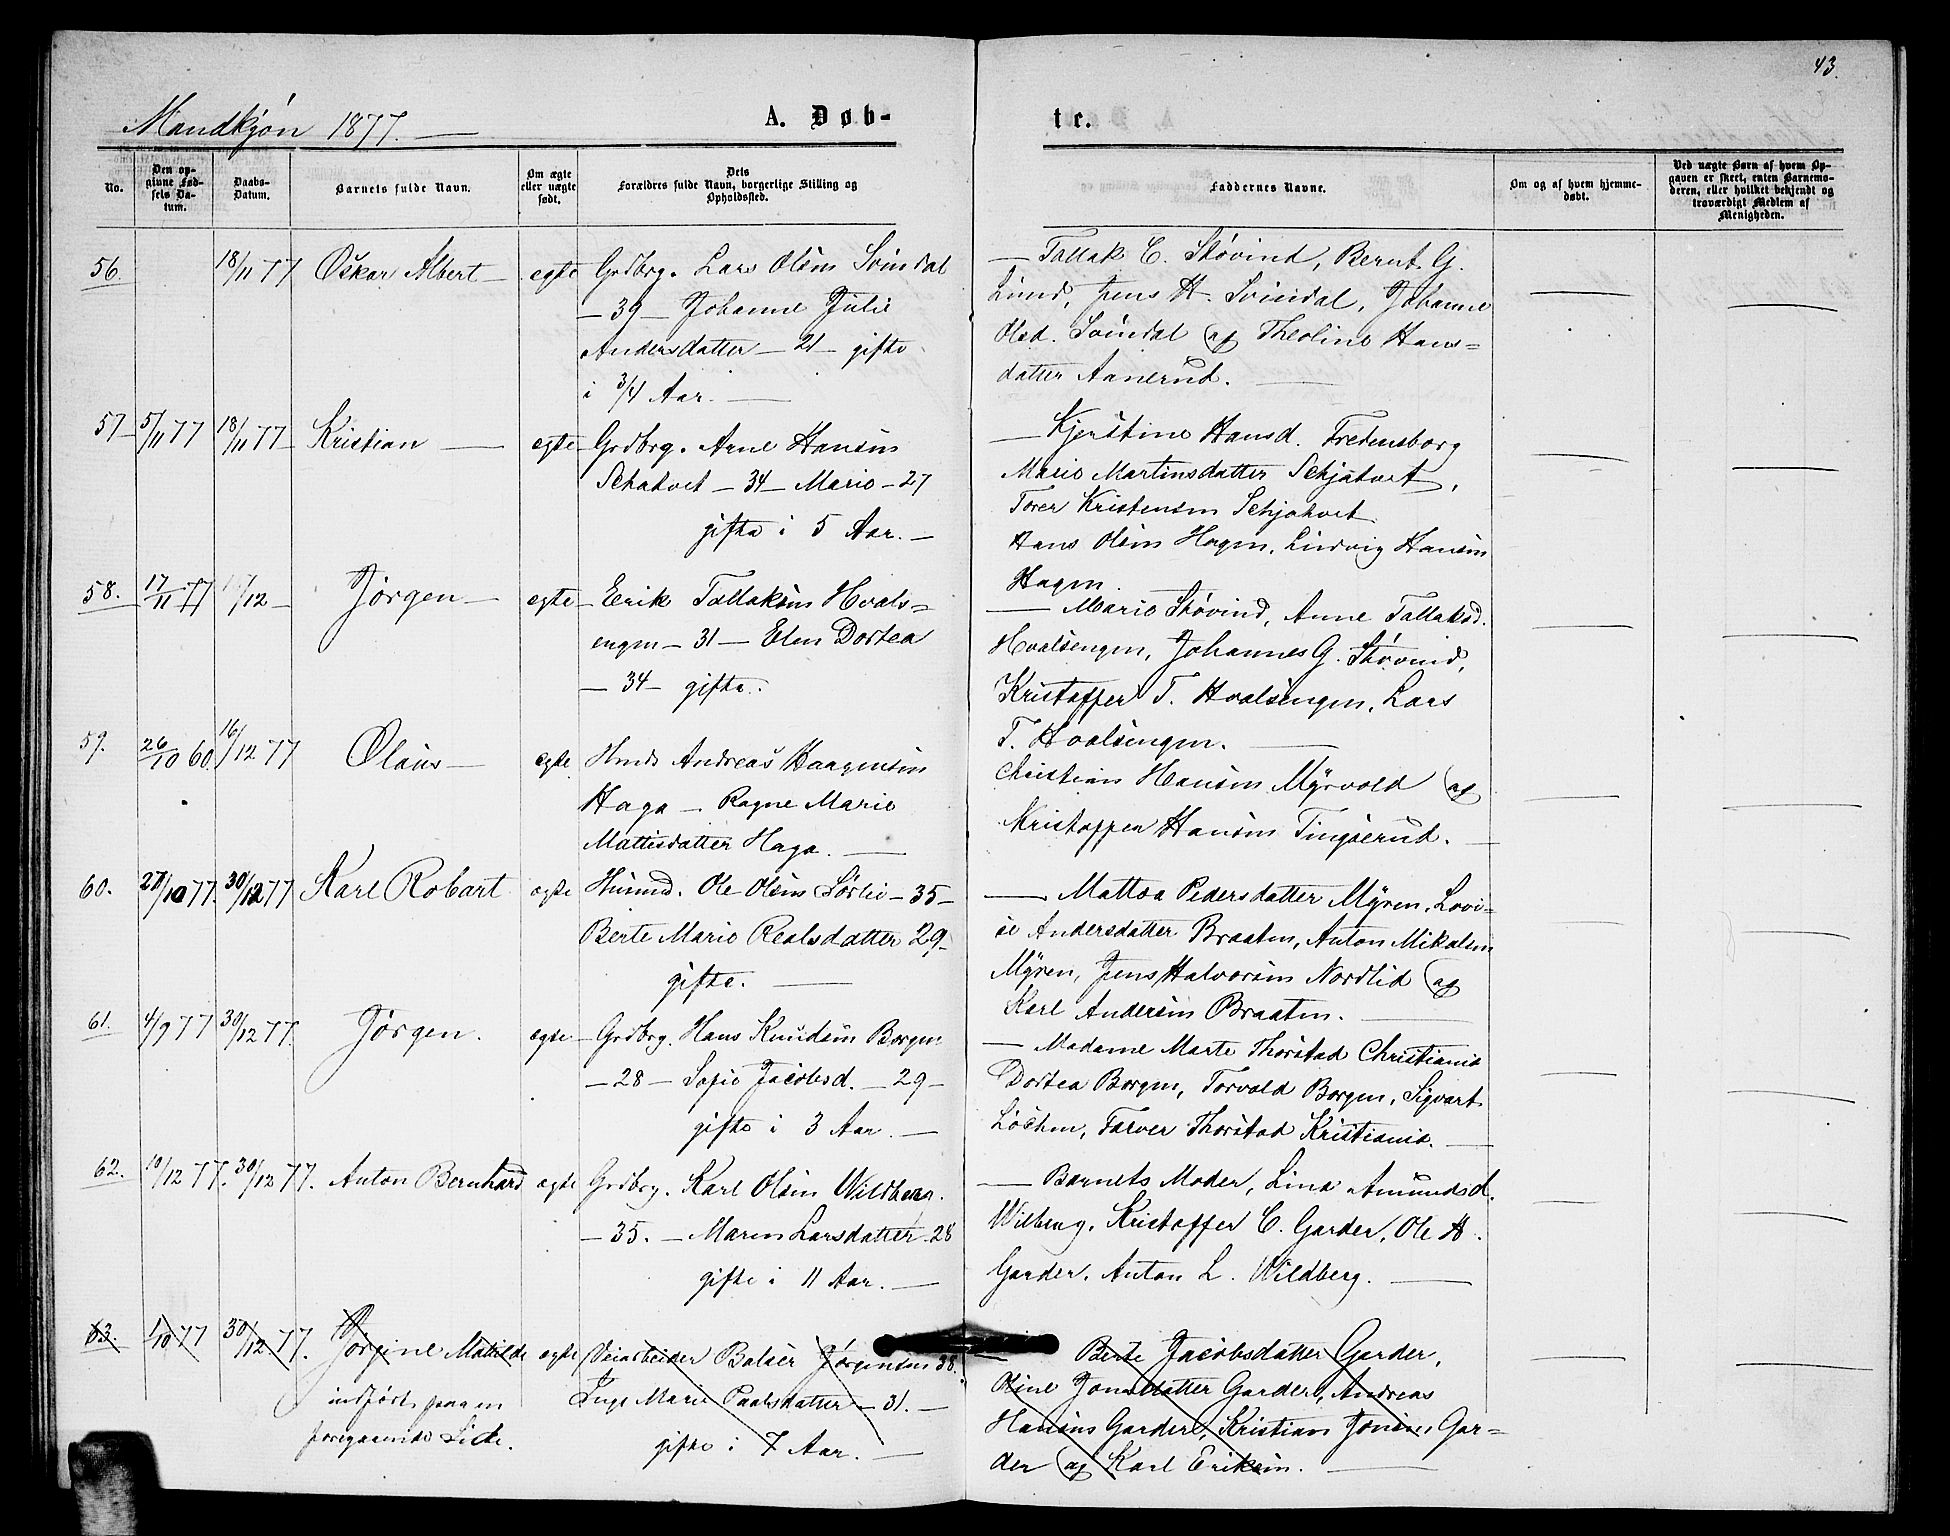 43.
Mandkjøn 1877.
A. Døb-
te.
No.
Den op-
givne Fød-
sels Da-
tum.
Daabs-
Datum.
Barnets fulde Navn.
Om ægte
eller uægte
født.
Dets
Forældres fulde Navn, borgerlige Stilling og
Opholdssted.
Faddernes Navne.
Om og af hvem hjemme-
døbt.
Ved uægte Børn af hvem Op-
gaven er skeet, enten Barnemo-
deren, eller hvilket bekjendt og
troværdigt Medlem af
Menigheden.
56. 18/11 77 Oskar Albert — egte Grdbrg. Lars Olsen Svindal
— 39 — Johanne Julie
Andersdatter — 21 — gifte
i 3/4 Aar. —
— Tallak C. Støvind, Bernt G.
Lund, Jens H. Svindal, Johanne
Olsd. Svindal og Theoline Hans-
datter Aanerud. —
57 — 5/11 77 18/11 77 Kristian — egte — Grdbrg. Arne Hansen
— 34 — Marie — 27
gifte i 5 Aar. —
— Kjerstine Hansd. Fredensborg
Marie Martinsdatter
Torer Kristensen
Hans Olsen Hagen, Ludvig Hansen
Hagen.
58. 17/11 77 /12 — Jørgen — egte — Erik Tallaksen Hvals-
engen — 31 — Elen Dortea
— 34 — gifte.
— Marie Støvind, Anne Tallaksd.
Hvalsengen, Johannes G. Støvind,
Kristoffer T. Hvalsengen, Lars
T. Hvalsengen. —
59. 26/10 60. 16/12 77 Olaus — egte Hmd. Andreas Haagensen
Haga — Ragne Marie
Mattisdatter Haga. —
Christian Hansen Myrvold og
Kristoffer Hansen Tingserud. —
60. 27/10 77. 30/12 77 Karl Robart egte Husmd. Ole Olsen Sørlie — 35 —
Berte Marie Realsdatter 29 —
gifte. —
— Mattea Pedersdatter Myren, Lovi-
se Andersdatter Braaten, Anton Mikalsen
Myren, Jens Halvorsen Nordlid og
Karl Andersen Braaten. —
61. 4/9 77 30/12 77. Jørgen. egte — Grdbrg. Hans Knudsen Borgen
— 28 — Sofie Jacobsd. — 29 —
gifte i 3 Aar. —
— Madame Marte Thorstad Christiania
Dortea Borgen, Torvald Borgen, Sigvart
Løchen, Farver Thorstad Kristiania. —
62. 10/12 77. 30/12 77. Anton Bernhard egte Grdbrg. Karl Olsen Wildberg.
— 35. — Maren Larsdatter. 28
gifte i 11 Aar. —
— Barnets Moder, Lina Amundsd.
Wilberg, Kristoffer C. Garder, Ole H.
Garder, Anton L. Wildberg. —
63. 1/10 77 30/12 77. Jørgine Matilde egte Veiarbeider Balser Jørgensen 38.
indført paa en
foregaaende Side.
Inge Marie Paalsdatter — 31. —
gifte i 7 Aar. —
— Berte Jacobsdatter Garder,
Oline Jonsdatter Garder, Andreas
Hansens Garder, Kristian Jonsen, Gar-
der og Karl Eriksen. —